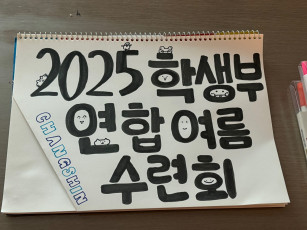 2025 학생부
연합 여름
수련회
CHANGSHIN